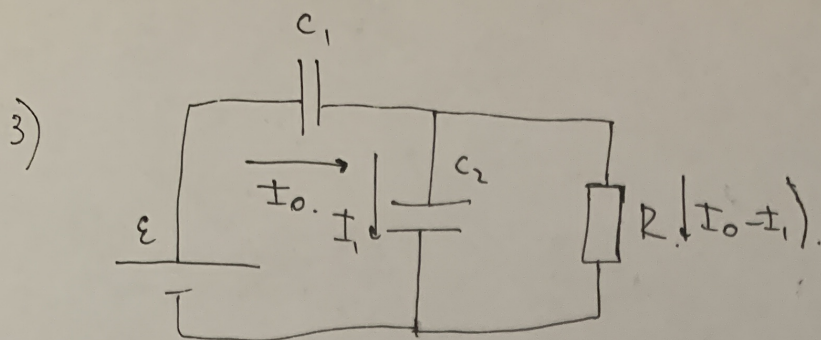 C₁
3)
I₀.
I₁
C₂
ε
R.
I₀-I₁).